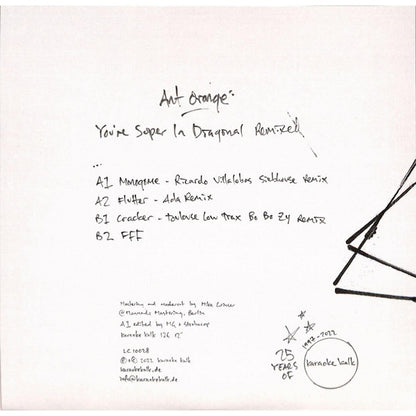 Ant Orange:
You're Super In Diagonal Remixed
...
A1 Monogame - Ricardo Villalobos Remix
A2 Flutter - Ada Remix
B1 Cracker - Toulouse Low Trax Bo Bo Zy Remix
B2 FFF
Mastering and mastercut by Mike Grinser
@Manmade Mastering, Berlin
A1 edited by MG &
karaoke kalk 126
LC 10028
℗+© 2022 karaoke kalk
karaokekalk.de
info@karaokekalk.de
25
YEARS
OF
1997-2022
karaoke kalk